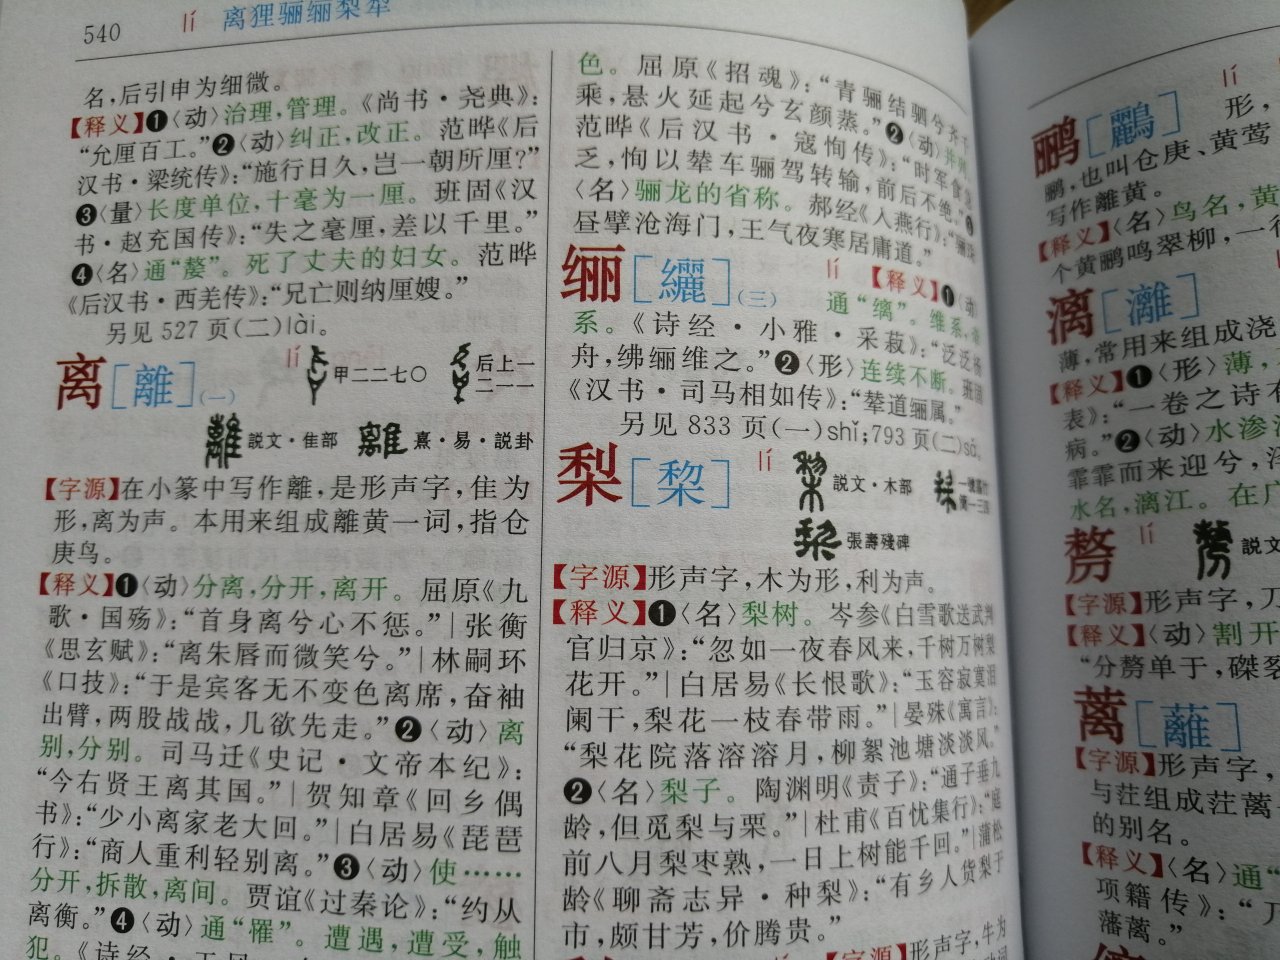 540
lí 离狸骊缡梨犁
名,后引申为细微。
【释义】❶〈动〉治理,管理。《尚书·尧典》:
“允厘百工。”❷〈动〉纠正,改正。范晔《后
汉书·梁统传》:“施行日久,岂一朝所厘?”
❸〈量〉长度单位,十毫为一厘。班固《汉
书·赵充国传》:“失之毫厘,差以千里。”
❹〈名〉通“嫠”。死了丈夫的妇女。范晔
《后汉书·西羌传》:“兄亡则纳厘嫂。”
另见527页(二)lài。
离[離](一) lí 甲二二七〇 后上一
二一一
説文·隹部 熹·易·説卦
【字源】在小篆中写作離,是形声字,隹为
形,离为声。本用来组成離黄一词,指仓
庚鸟。
【释义】❶〈动〉分离,分开,离开。屈原《九
歌·国殇》:“首身离兮心不惩。”|张衡
《思玄赋》:“离朱唇而微笑兮。”|林嗣环
《口技》:“于是宾客无不变色离席,奋袖
出臂,两股战战,几欲先走。”❷〈动〉离
别,分别。司马迁《史记·文帝本纪》:
“今右贤王离其国。”|贺知章《回乡偶
书》:“少小离家老大回。”|白居易《琵琶
行》:“商人重利轻别离。”❸〈动〉使……
分开,拆散,离间。贾谊《过秦论》:“约从
离衡。”❹〈动〉通“罹”。遭遇,遭受,触
犯。《诗经·王风
色。屈原《招魂》:“青骊结驷兮齐千
乘,悬火延起兮玄颜蒸。”❷〈动〉并列
范晔《后汉书·寇恂传》:“时军食急
乏,恂以辇车骊驾转输,前后不绝。”❸
〈名〉骊龙的省称。郝经《入燕行》:“骊珠
昼擘沧海门,王气夜寒居庸道。”
缡[纚](三) lí 【释义】❶〈动〉
通“缡”。维系,
系。《诗经·小雅·采菽》:“泛泛杨
舟,绋缡维之。”❷〈形〉连续不断。班固
《汉书·司马相如传》:“辇道缡属。”
另见833页(一)shǐ;793页(二)sǎ。
梨[棃] lí 説文·木部
張壽殘碑
【字源】形声字,木为形,利为声。
【释义】❶〈名〉梨树。岑参《白雪歌送武判
官归京》:“忽如一夜春风来,千树万树梨
花开。”|白居易《长恨歌》:“玉容寂寞泪
阑干,梨花一枝春带雨。”|晏殊《寓言》:
“梨花院落溶溶月,柳絮池塘淡淡风。”
❷〈名〉梨子。陶渊明《责子》:“通子垂九
龄,但觅梨与栗。”|杜甫《百忧集行》:“庭
前八月梨枣熟,一日上树能千回。”|蒲松
龄《聊斋志异·种梨》:“有乡人货梨于
市,颇甘芳,价腾贵。”
lí 【字源】形声字,牛为
鹂[鸝] lí 形,
鹂,也叫仓庚、黄莺
写作離黄。
【释义】〈名〉鸟名,黄
个黄鹂鸣翠柳,一行
漓[灕]
薄,常用来组成浇
【释义】❶〈形〉薄,
表》:“一卷之诗
病。”❷〈动〉水渗
霏霏而来迎兮,
水名,漓江。在广
剺 lí 説文
【字源】形声字,刀
【释义】〈动〉割开
“分剺单于,磔裂
蓠[蘺]
【字源】形声字,
与茳组成茳蓠
的别名。
【释义】〈名〉通“
项籍传》:“
藩蓠。”